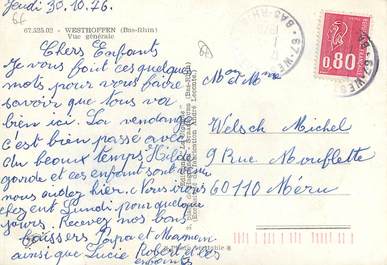 Jeudi 30.10.76.
67.525.02 - WESTHOFFEN (Bas-Rhin)
Vue générale
Chers Enfants
Je vous boit ces quelques
mots pour vous faire
savoir que tous va
bien ici. La vendange
c'est bien passé avec
du beaux temps. Hulde
garde et ces enfant sont venu
nous aidez hier. Vais irons
chez ent Lundi pour quelque
jours. Recevez nos bons
baissers Papa et Maman
ainsi que Lucie Robert et ces
enfants
Mr et Mme
Welsch Michel
9 Rue Mouflette
60110 Méru
0,80